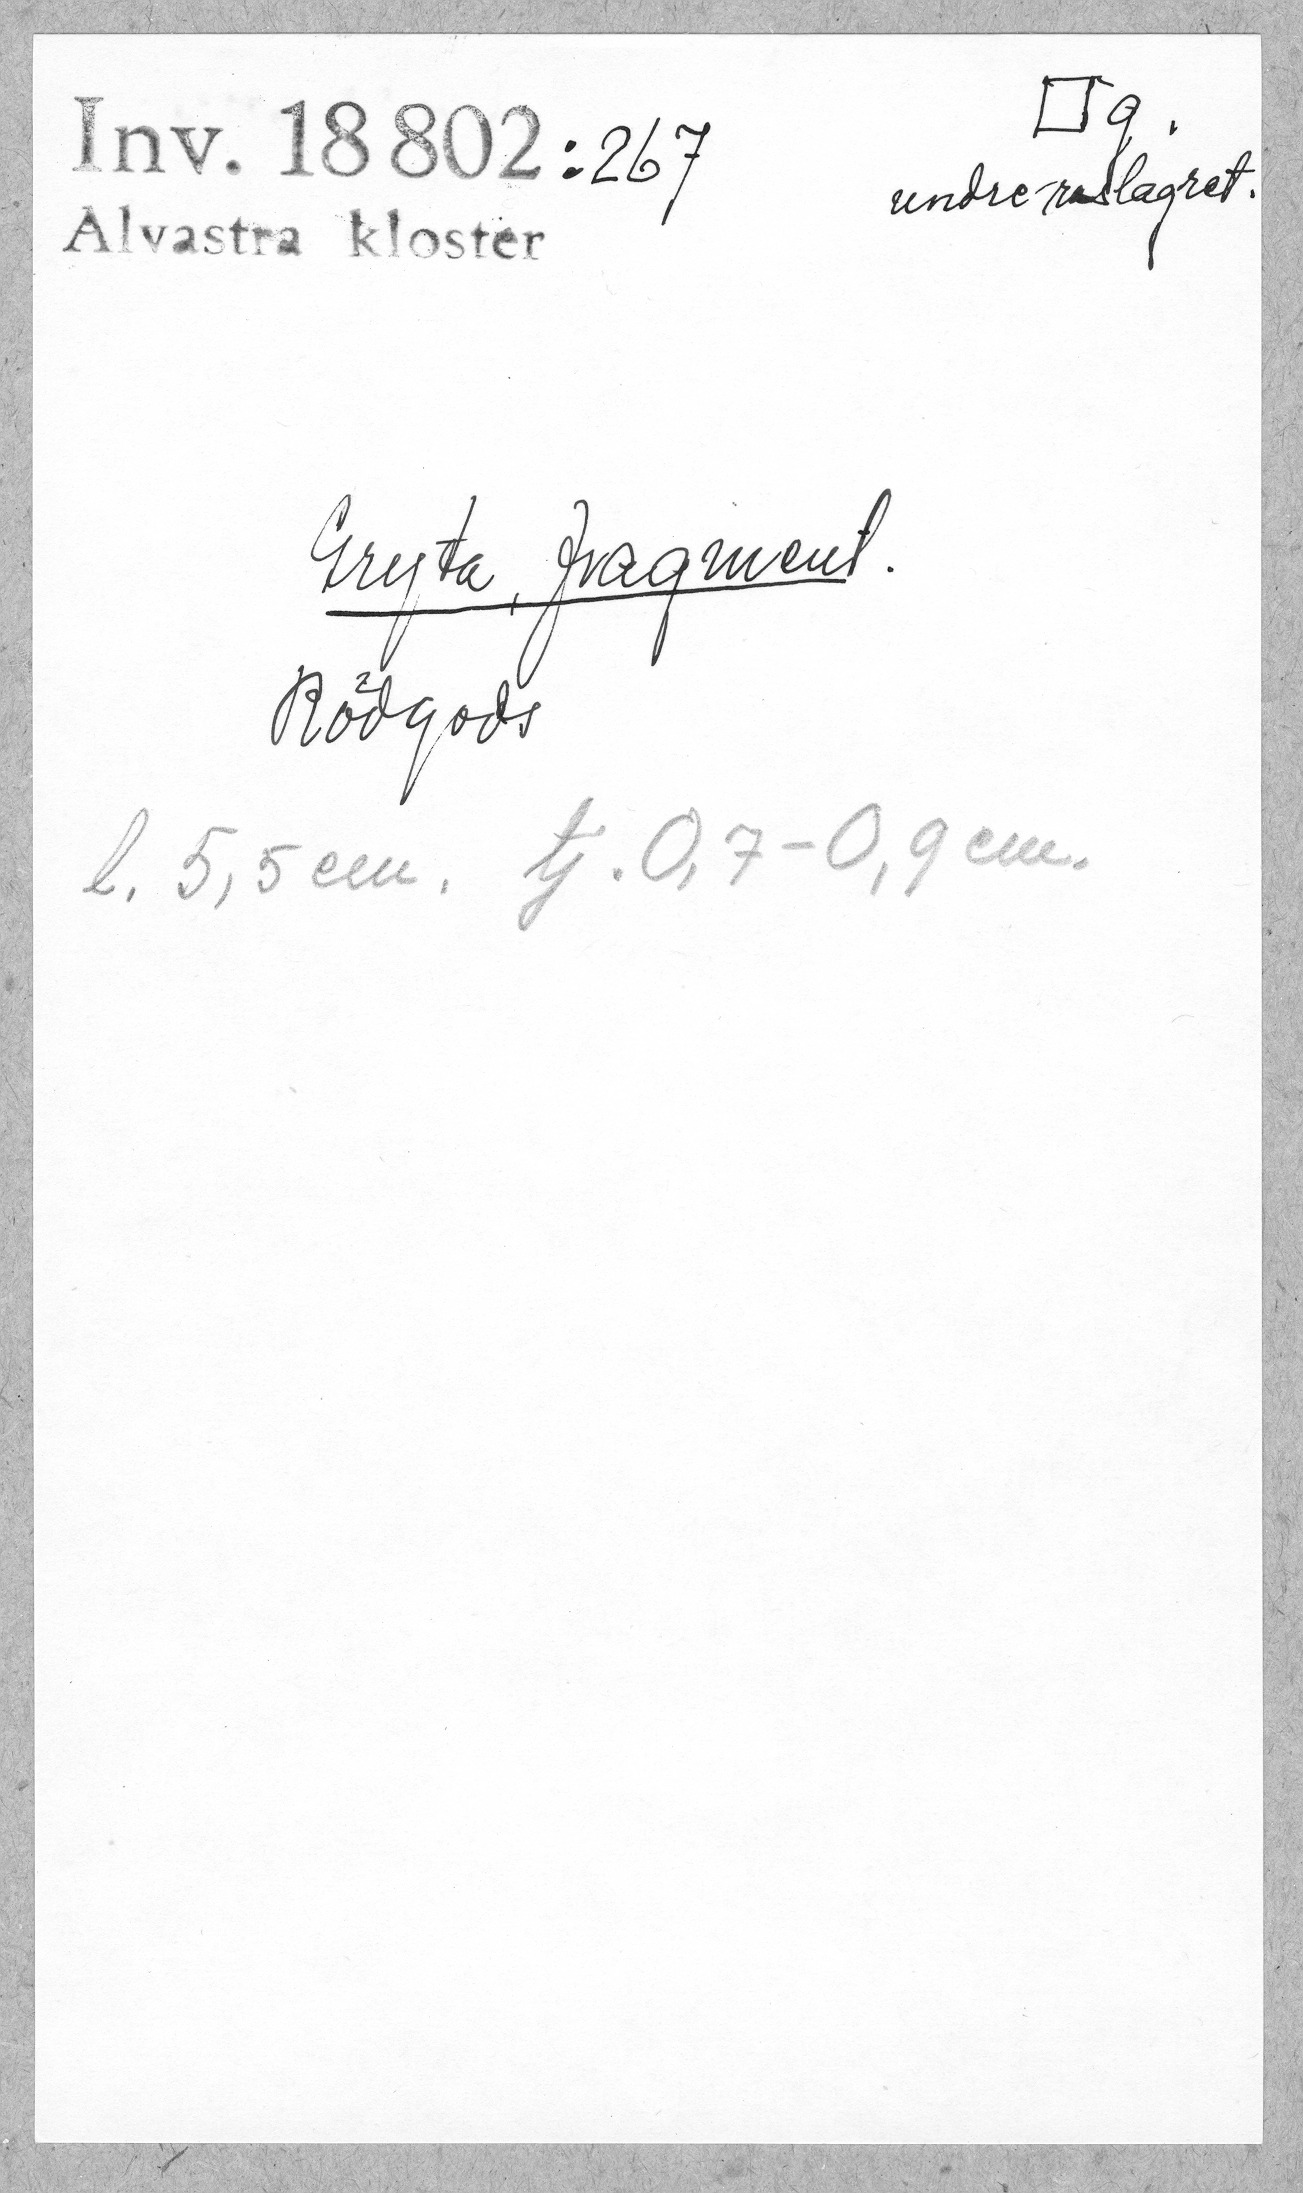 Inv. 18 802 :267
Alvastra kloster
□ 9.
undre raslagret.
Gryta, fragment.
Rödgods
l. 5,5 cm. tj. 0,7-0,9 cm.